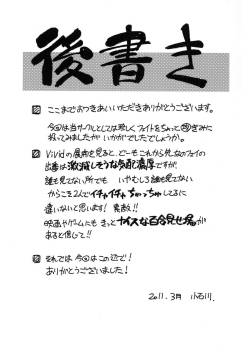 後書き
ここまでおつきあいいただきありがとうございます。
今回は当サークルとしては珍しくファイトをちょっと㊙ぎみに
扱ってみましたが いかがでしたでしょうか。
Vividの展開を見ると、どーもこれから先なのフェイの
出番は激減しそうな気配濃厚ですが、
誰も見てない所でも いやむしろ誰も見てない
からこそ2人でイチャイチャちゅっちゅしてるに
違いないと思います! 素敵!!
映画やゲームにも きっとナイスな百合見せ場が
あると信じて!!
それでは 今回はこの辺で!
ありがとうございました!
2011.3月 小石川